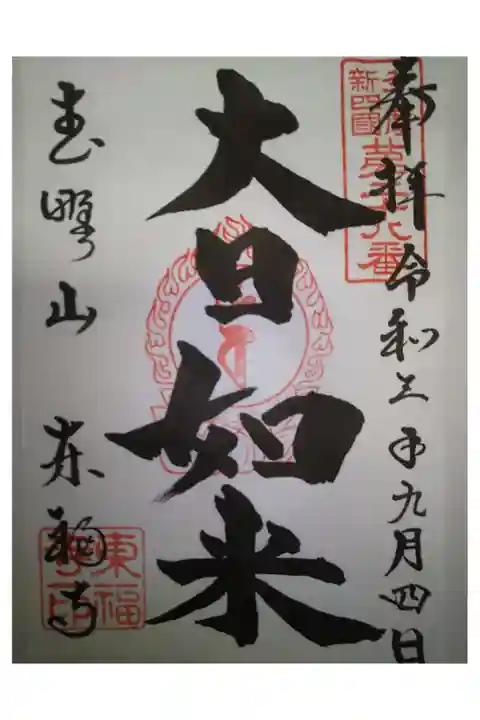 奉拝 令和三年九月四日
大日如来
春野山 東福寺
新四国
東福